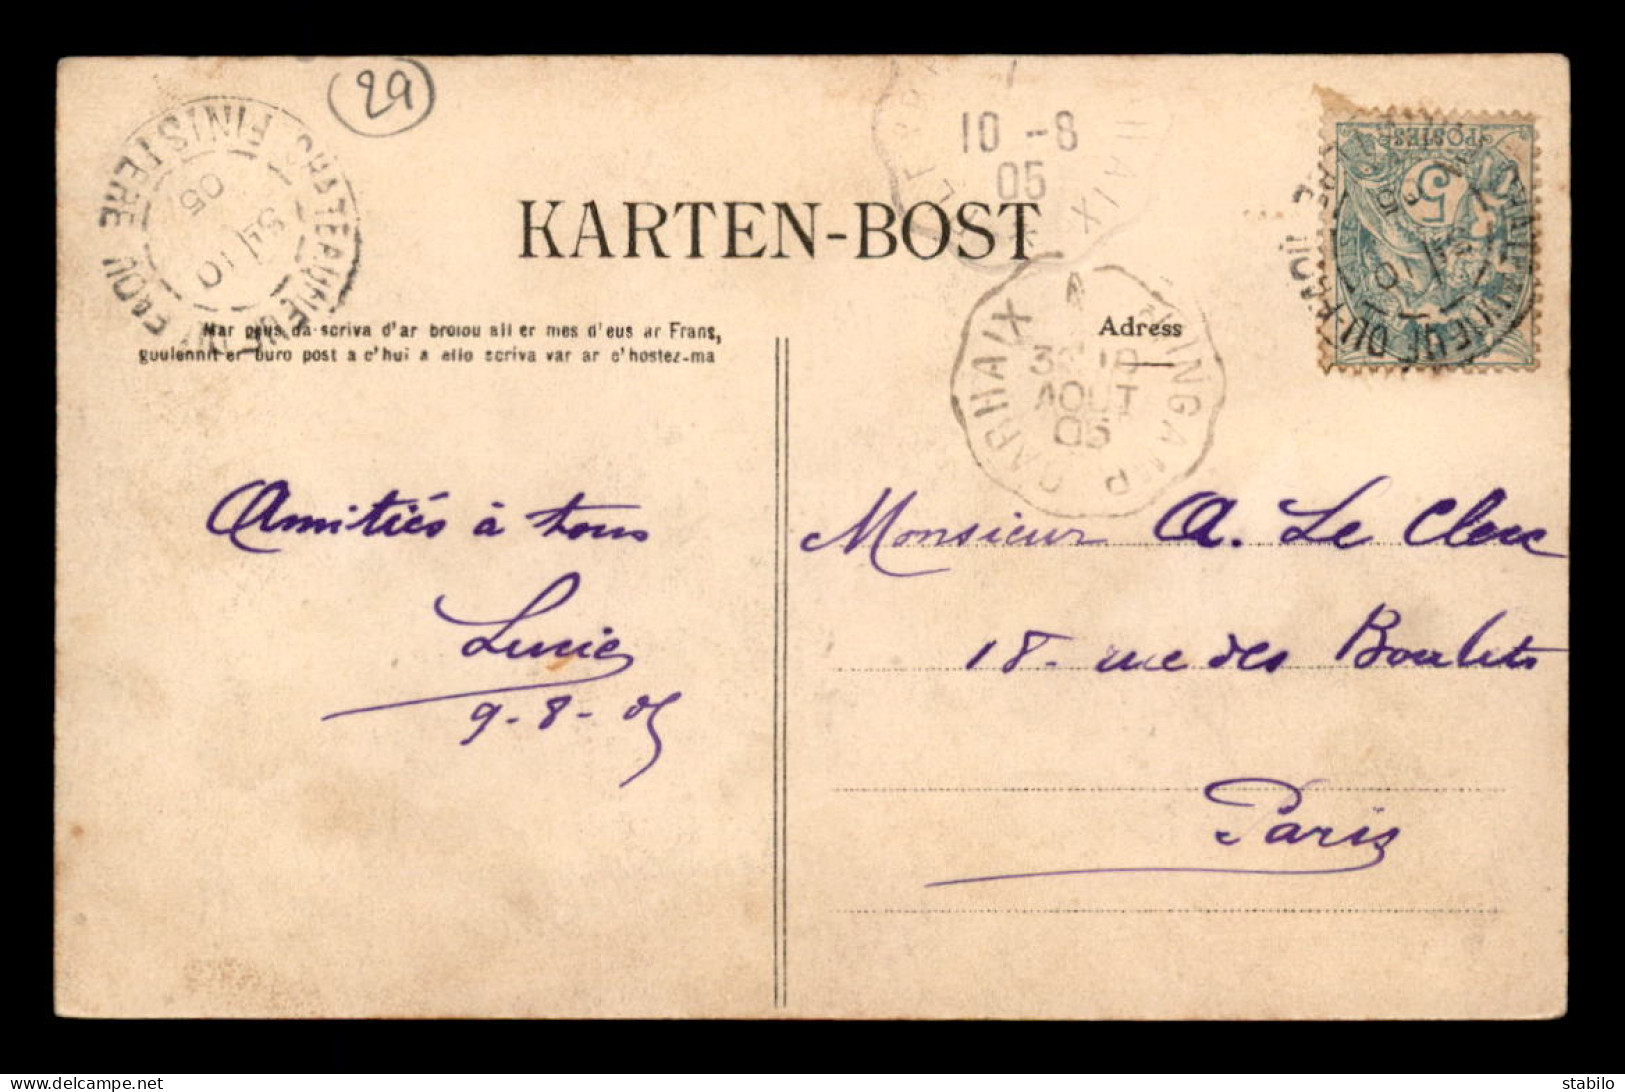 29
CHATEAUNEUF DU FAOU
FINISTERE
10
05
10 -8
05
POSTES
5
KARTEN-BOST
Mar plus da scriva d'ar broiou all er mes d'eus ar Frans,
goulennit er buro post a c'hui a ello scriva var ar c'hostez-ma
Adress
CARHAIX A GUINGAMP
10
AOUT
05
Amitiés à tous
Lucie
9-8-05
Monsieur A. Le Clerc
18 - rue des Boulets
Paris
stabilo